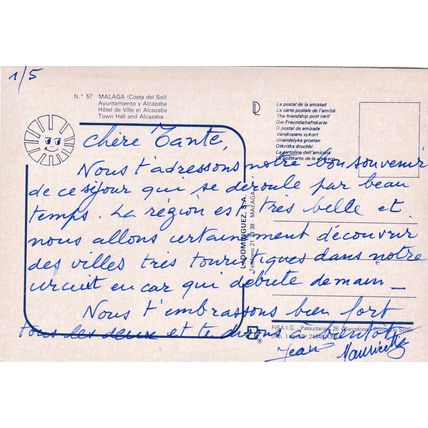 1/5
N.° 57 MALAGA (Costa del Sol)
Ayuntamiento y Alcazaba
Hôtel de Ville et Alcazaba
Town Hall and Alcazaba
La postal de la amistad
La carte postale de l'amitié
The friendship post card
Die Freundschaftskarte
O postal de amizade
Vanskopens vykort
Vriendelyke groeten
Chère Tante,
Nous t'adressons notre bon souvenir
de ce séjour qui se déroule par beau
temps. La région est très belle et
nous allons certainement découvrir
des villes très touristiques dans notre
circuit en car qui débute demain _
Nous t'embrassons bien fort
tous les deux et te disons à bientôt
Jean Mauricette
DOMINGUEZ, S.A.
FISA I.G.